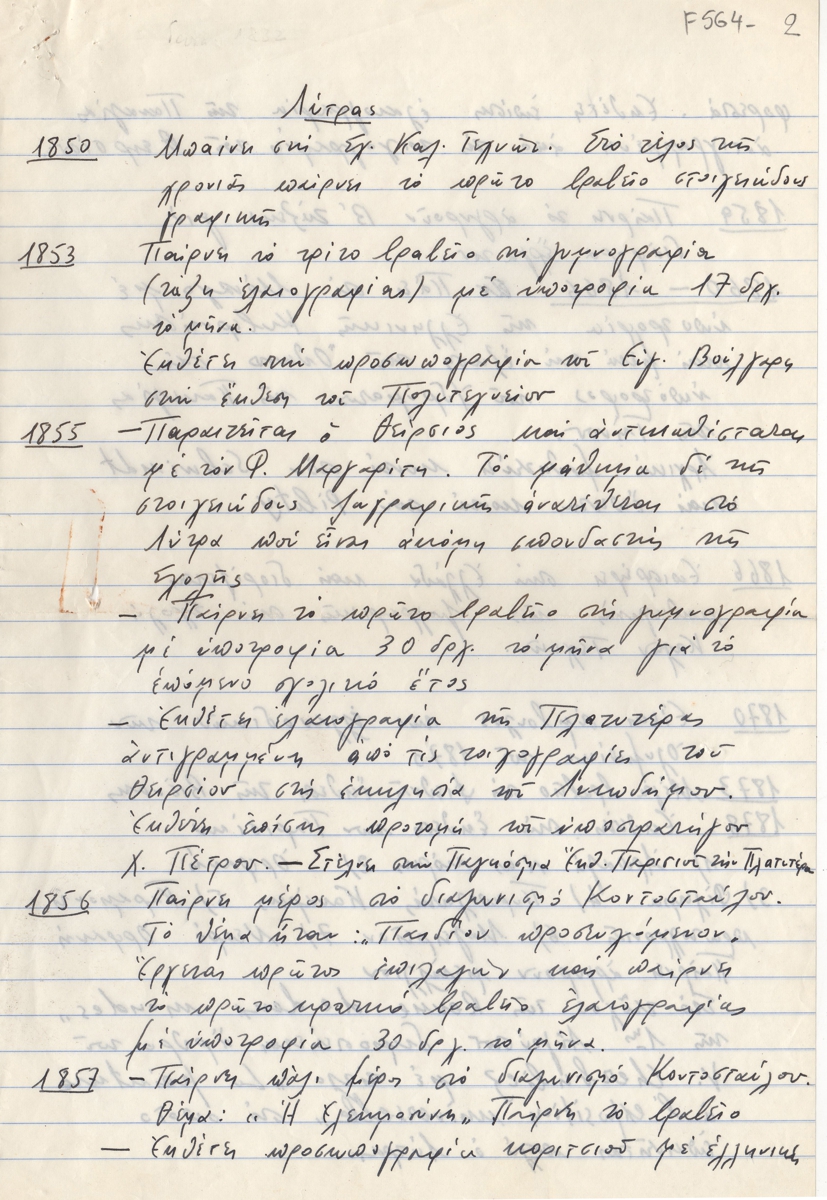 F564- 2
Λύτρας
1850 Μπαίνει στή Σχ. Καλ. Τεχνῶν. Στό τέλος τῆς
χρονιᾶς παίρνει τό πρῶτο βραβεῖο στοιχειώδους
γραφικῆς
1853 Παίρνει τό τρίτο βραβεῖο στή γυμνογραφία
(τάξη ἐλαιογραφίας) μέ ὑποτροφία – 17 δρχ.
τό μῆνα.
Ἐκθέτει τήν προσωπογραφία τοῦ Εὐγ. Βούλγαρη
στήν ἔκθεση τοῦ Πολυτεχνείου
1855 – Παραιτεῖται ὁ Θείρσιος καί ἀντικαθίσταται
μέ τόν Φ. Μαργαρίτη. Τό μάθημα δέ τῆς
στοιχειώδους ζωγραφικῆς ἀνατίθεται στό
Λύτρα πού εἶναι ἀκόμη σπουδαστής τῆς
Σχολῆς
– Παίρνει τό πρῶτο βραβεῖο στή γυμνογραφία
μέ ὑποτροφία 30 δρχ. τό μῆνα γιά τό
ἑπόμενο σχολικό ἔτος
– Ἐκθέτει ἐλαιογραφία τῆς Πλατυτέρας
ἀντιγραμμένη ἀπό τίς τοιχογραφίες τοῦ
Θειρσίου στήν ἐκκλησία τοῦ Λυκοδήμου.
Ἐκθέτει ἐπίσης προτομή τοῦ ὑποστρατήγου
Χ. Πέτρου. – Στέλνει στήν Παγκόσμια Ἔκθ. Παρισιοῦ τήν Πλατυτέρα
1856 Παίρνει μέρος στό διαγωνισμό Κοντοσταύλου.
Τό θέμα ἦταν: „Παιδίον προσευχόμενον„
Ἔρχεται πρῶτος ἐπιλαχών καί παίρνει
τό πρῶτο κρατικό βραβεῖο ἐλαιογραφίας
μέ ὑποτροφία 30 δρχ. τό μῆνα.
1857 – Παίρνει πάλι μέρος στό διαγωνισμό Κοντοσταύλου.
Θέμα: „Ἡ Ἐλεημοσύνη„ Παίρνει τό βραβεῖο
– Ἐκθέτει προσωπογραφία κοριτσιοῦ μέ ἑλληνική